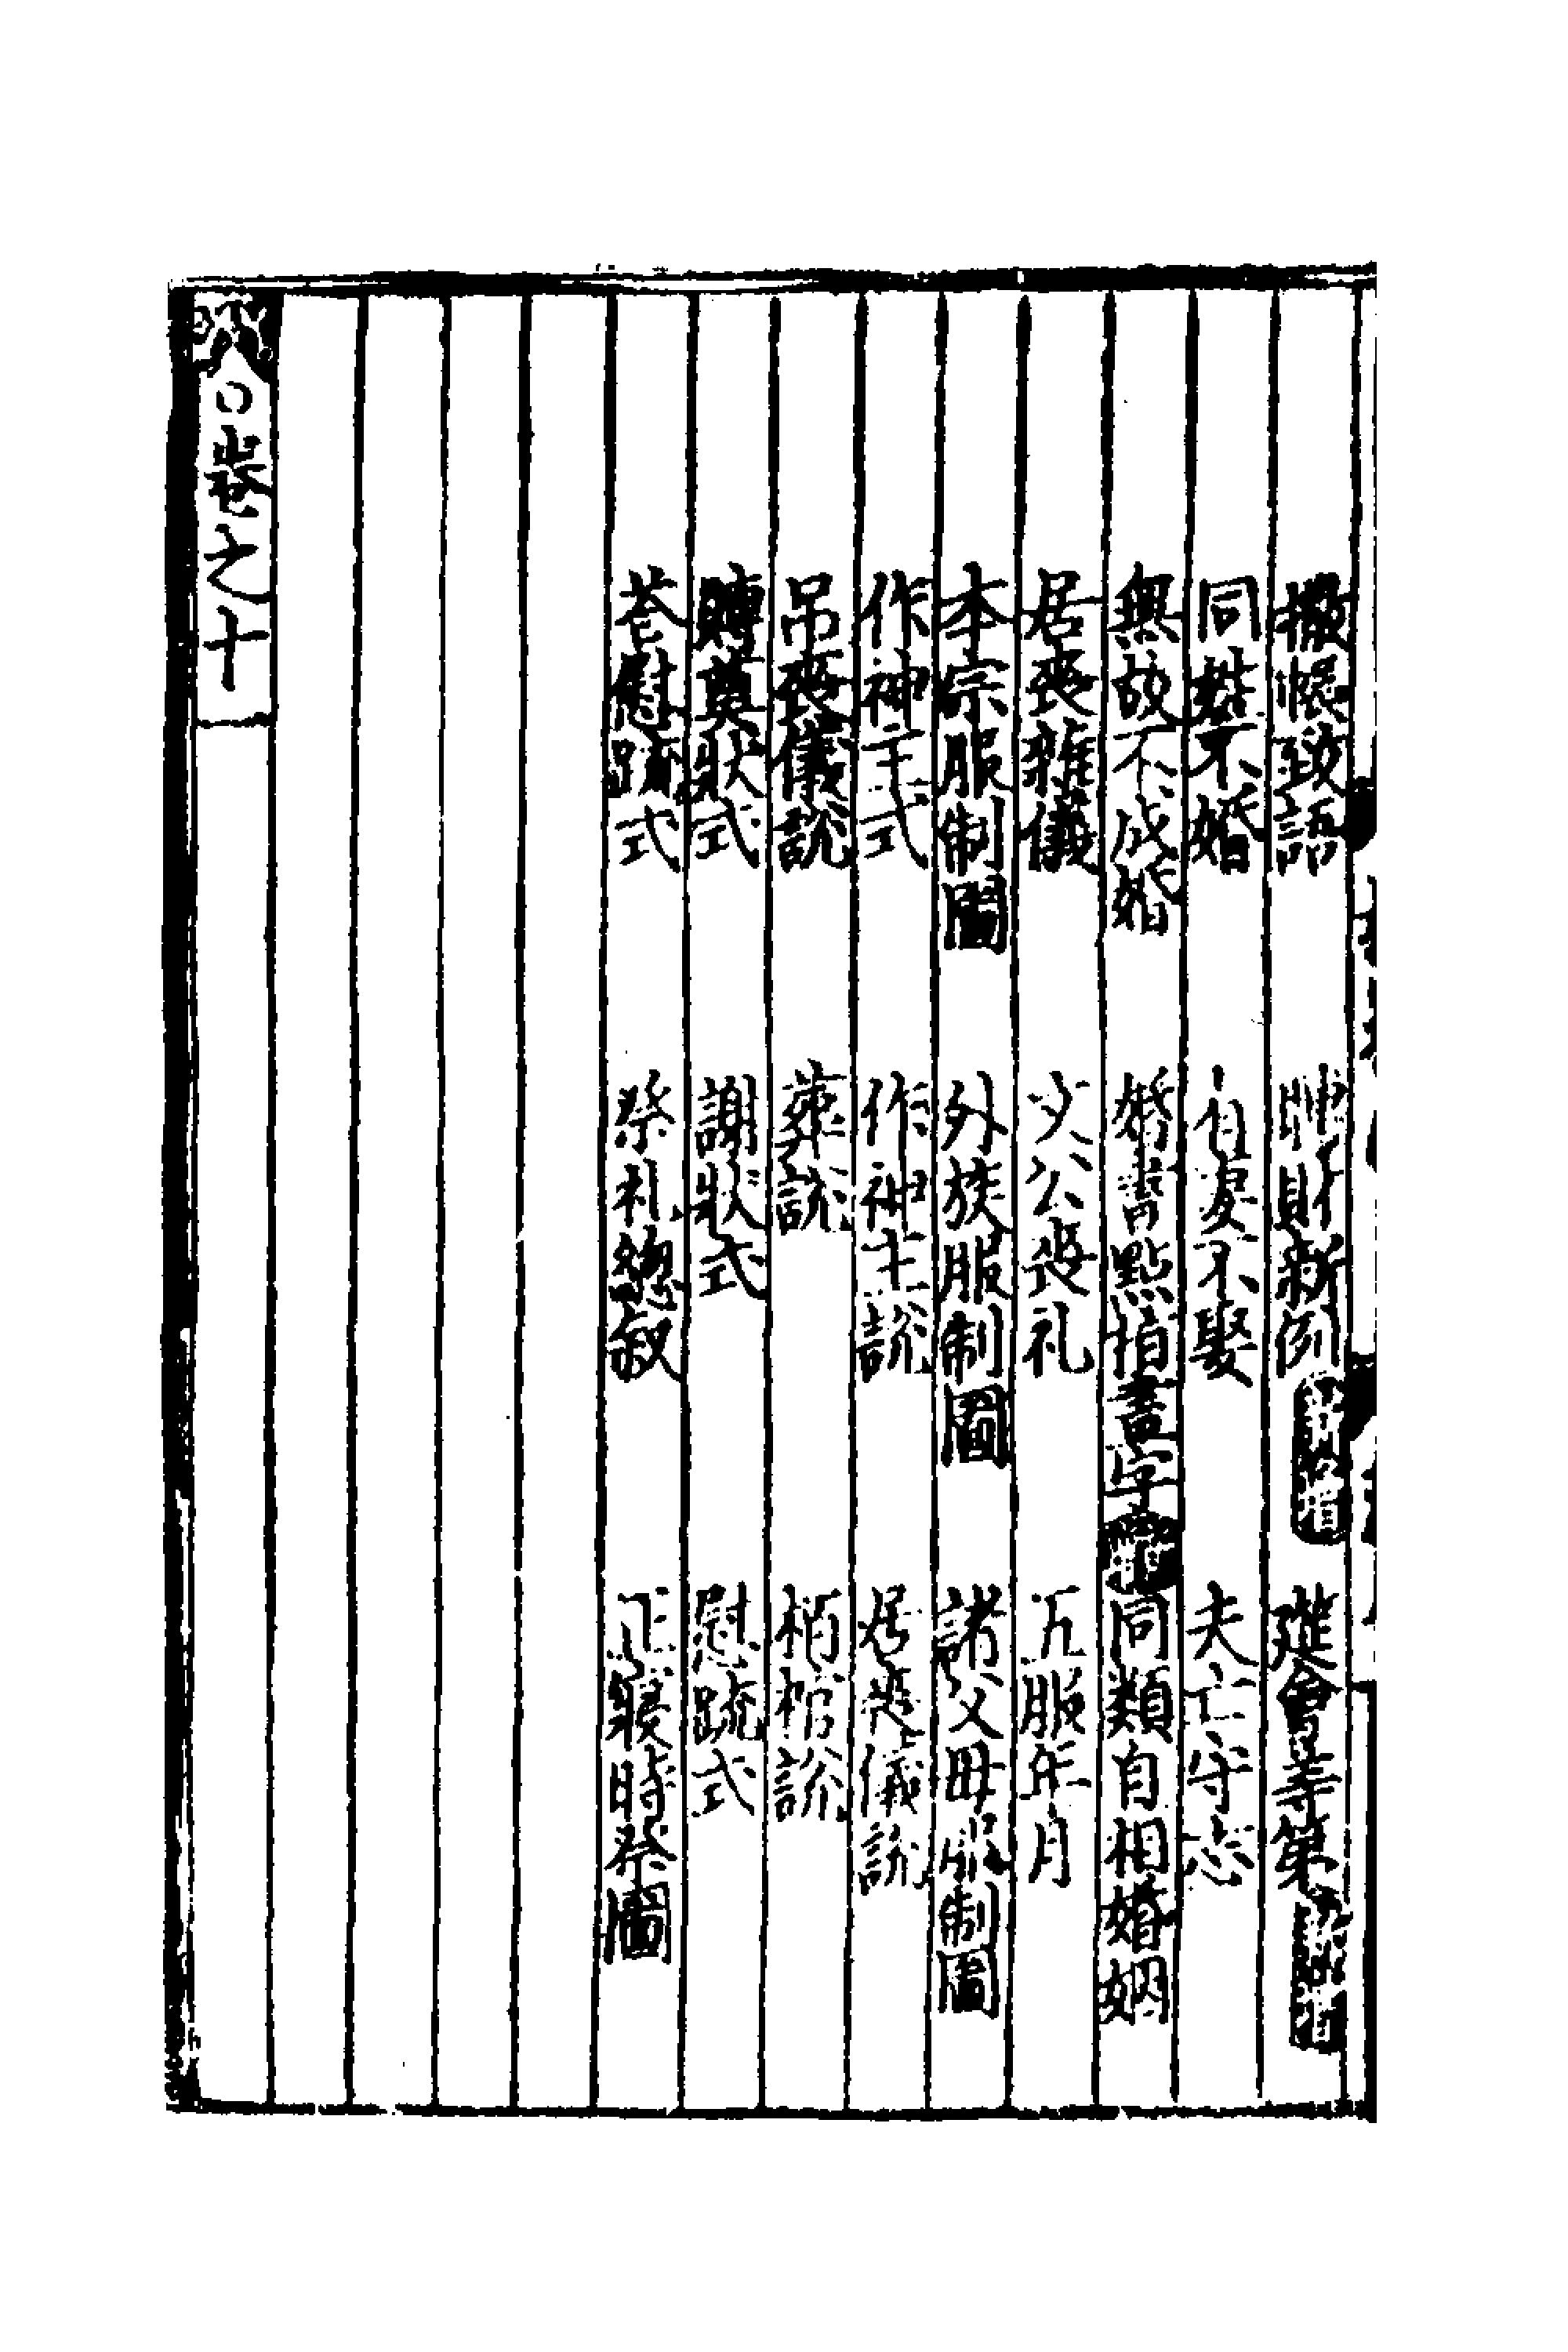 撒帳致語 聘財新例 新增 筵會等第 新增
同姓不婚 有妻不娶 夫亡守志
無故不成婚 婚書點指畫字 新增 同類自相婚姻
居喪雜儀 文公喪礼 五服年月
本宗服制圖 外族服制圖 諸父母服制圖
作神主式 作神主説 居喪儀説
吊喪儀説 葬説 栢棺説
賻奠狀式 謝狀式 慰䟽式
荅慰䟽式 祭礼緫叙 正寢時祭圖
○卷之十